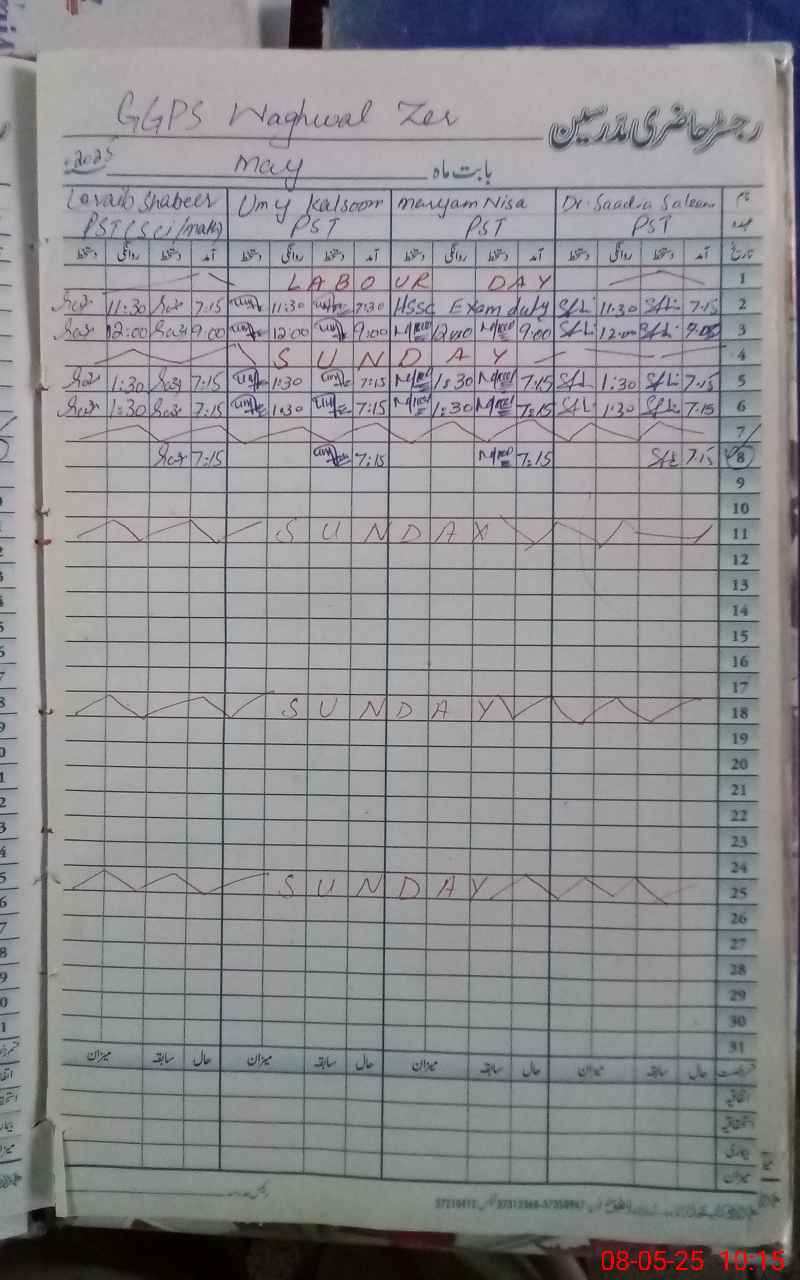 GGPS Waghwal Zer
رجسٹر حاضری مدرسین
2025 May بابت ماہ
Laraib Shabeer Umy Kalsoom Maryam Nisa Dr. Saadia Saleem نام
PST (Sci/math) PST PST PST عہدہ
دستخط روانگی دستخط آمد دستخط روانگی دستخط آمد دستخط روانگی دستخط آمد دستخط روانگی دستخط آمد تاریخ
LABOUR DAY 1
11:30 7:15 11:30 7:30 HSSC Exam duty 11:30 7:15 2
12:00 9:00 12:00 9:00 12:00 9:00 12:00 9:00 3
SUNDAY 4
1:30 7:15 1:30 7:15 1:30 7:15 1:30 7:15 5
1:30 7:15 1:30 7:15 1:30 7:15 1:30 7:15 6
7
7:15 7:15 7:15 7:15 8
9
10
SUNDAY 11
12
13
14
15
16
17
SUNDAY 18
19
20
21
22
23
24
SUNDAY 25
26
27
28
29
30
31
میزان سابقہ حال میزان سابقہ حال میزان سابقہ حال میزان سابقہ حال
اتفاقیہ
استحقاقیہ
بیماری
میزان
08-05-25 10:15